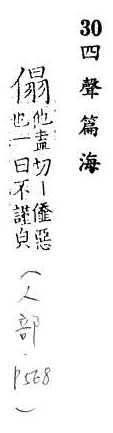 30四聲篇海
傝
他盍切丨惡
也一曰不謹皃
(人部·p568)